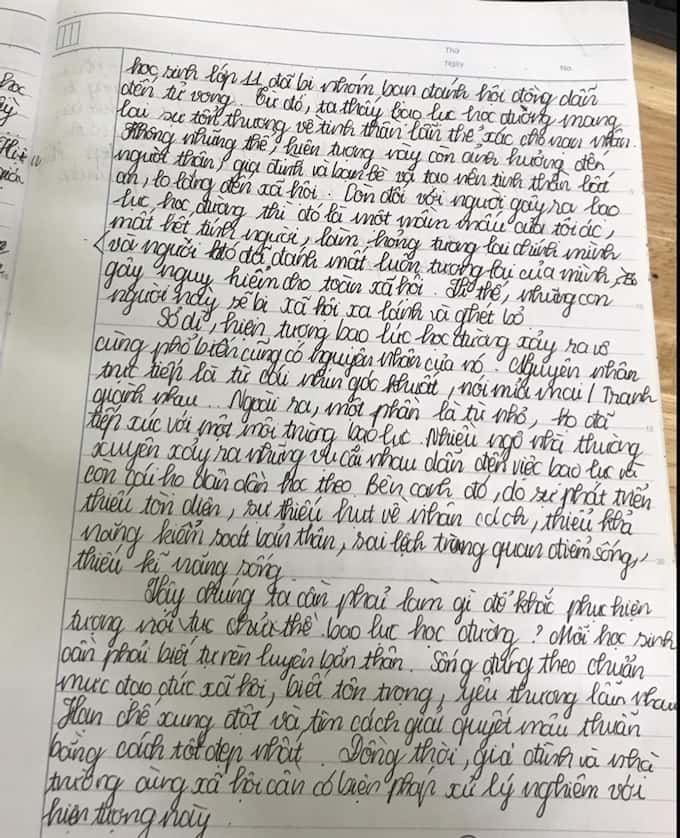 Thứ
Ngày
No.
học sinh lớp 11 đã bị nhóm bạn đánh hội đồng dẫn
đến tử vong. Từ đó, ta thấy bạo lực học đường mang
lại sự tổn thương về tinh thần lẫn thể xác cho nạn nhân.
Không những thế, hiện tượng này còn ảnh hưởng đến
người thân, gia đình và bạn bè và tạo nên tinh thần bất
an, lo lắng đến xã hội. Còn đối với người gây ra bạo
lực học đường thì đó là một mầm mấu của tội ác,
mất hết tính người, làm hỏng tương lai chính mình
và người đó đã đánh mất luôn tương lai của mình,
gây nguy hiểm cho toàn xã hội. Vì thế, những con
người này sẽ bị xã hội xa lánh và ghét bỏ
Sở dĩ, hiện tượng bạo lực học đường xảy ra vô
cùng phổ biến cũng có nguyên nhân của nó. Nguyên nhân
trực tiếp là từ cái nhìn góc khuất, nói mỉa mai / Tranh
giành nhau... Ngoài ra, một phần là từ nhỏ, họ đã
tiếp xúc với một môi trường bạo lực. Nhiều ngôi nhà thường
xuyên xảy ra những vụ cãi nhau dẫn đến việc bạo lực và
con cái họ dần dần học theo. Bên cạnh đó, do sự phát triển
thiếu toàn diện, sự thiếu hụt về nhân cách, thiếu khả
năng kiểm soát bản thân, sai lệch trong quan điểm sống,
thiếu kĩ năng sống.
Vậy chúng ta cần phải làm gì để khắc phục hiện
tượng nói tục chửi thề bạo lực học đường? Mỗi học sinh
cần phải biết tự rèn luyện bản thân. Sống đúng theo chuẩn
mực đạo đức xã hội, biết tôn trọng, yêu thương lẫn nhau
Hạn chế xung đột và tìm cách giải quyết mâu thuẫn
bằng cách tốt đẹp nhất. Đồng thời, gia đình và nhà
trường cùng xã hội cần có biện pháp xử lý nghiêm với
hiện tượng này.